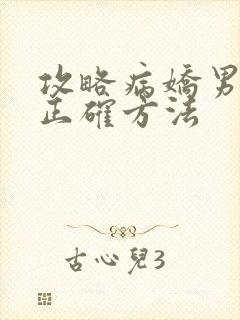 攻略病嬌男
正確方法
古心兒3